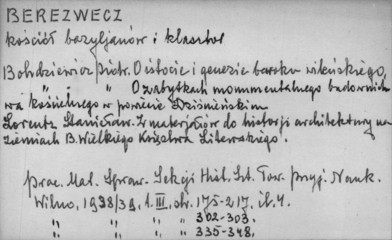 BEREZWECZ
kościół bazyljanów i klasztor
Bohdziewicz Piotr. O istocie i genezie baroku wileńskiego,
" " O zabytkach monumentalnego budownict-
wa kościelnego w powiecie Dziśnieńskim
Lorentz Stanisław. Z materjałów do historji architektury na
ziemiach B. Wielkiego Księstwa Litewskiego.
Prac. Mat. Spraw. Sekcji Hist. Szt. Tow. Przyj. Nauk.
Wilno, 1938/39, t. III, str. 175-217, il. 4.
" " " " 302-303.
" " " " 335-348.